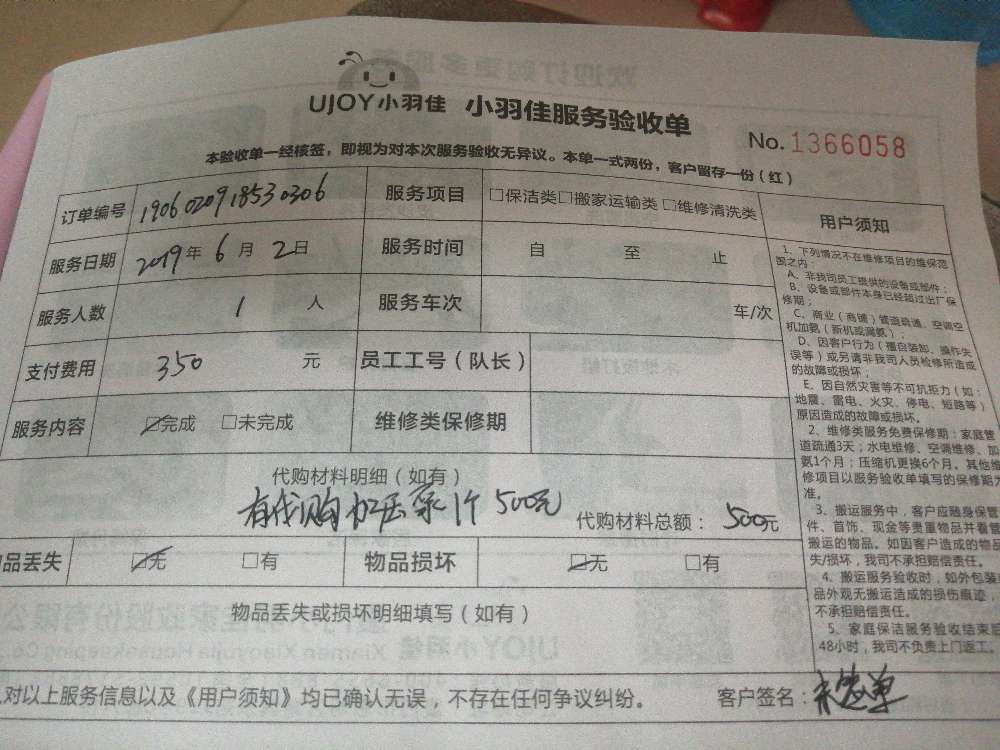 UJOY小羽佳 小羽佳服务验收单
No.1366058
本验收单一经核签，即视为对本次服务验收无异议。本单一式两份，客户留存一份（红）
订单编号 1906020918530306 服务项目 □保洁类□搬家运输类□维修清洗类
服务日期 2019年6月2日 服务时间 自 至 止
服务人数 1 人 服务车次 车/次
支付费用 350 元 员工工号（队长）
服务内容 ☑完成 □未完成 维修类保修期
代购材料明细（如有）
有代购加压泵1个500元 代购材料总额：500元
品丢失 ☑无 □有 物品损坏 ☑无 □有
物品丢失或损坏明细填写（如有）
对以上服务信息以及《用户须知》均已确认无误，不存在任何争议纠纷。 客户签名：
用户须知
1、下列情况不在维修项目的维保范
围之内：
A、非我司员工提供的设备或部件；
B、设备或部件本身已经超过出厂保
修期；
C、商业（商铺）管道疏通、空调空
机加氨（新机或漏氨）
D、因客户行为（擅自装卸、操作失
误等）或另请非我司人员检修所造成
的故障或损坏；
E、因自然灾害等不可抗拒力（如：
地震、雷电、火灾、停电、短路等）
原因造成的故障或损坏。
2、维修类服务免费保修期：家庭管
道疏通3天；水电维修、空调维修、加
氨1个月；压缩机更换6个月。其他维
修项目以服务验收单填写的保修期为
准。
3、搬运服务中，客户应随身保管
件、首饰、现金等贵重物品并看管
搬运的物品。如因客户造成的物品
失/损坏，我司不承担赔偿责任。
4、搬运服务验收时，如外包装
品外观无搬运造成的损伤痕迹，
不承担赔偿责任。
5、家庭保洁服务验收结束后
48小时，我司不负责上门返工。